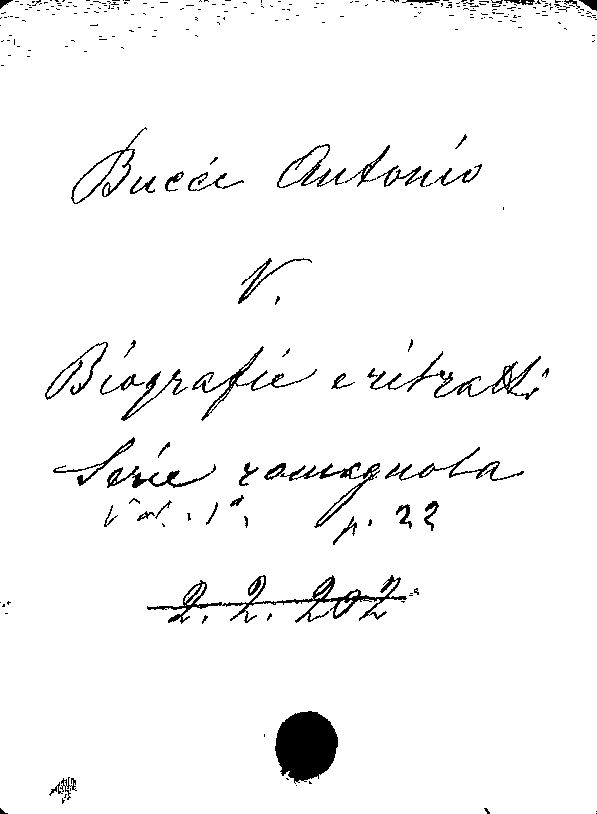 Bucci Antonio
V.
Biografie e ritratti
Serie romagnola
Vol. 1°. p. 22
2. 2. 202